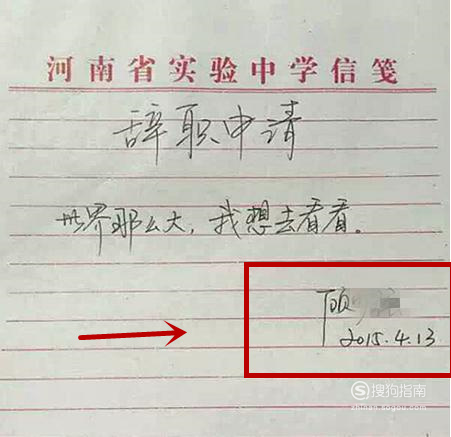 河南省实验中学信笺
辞职申请
世界那么大，我想去看看。
顾
2015.4.13
搜狗指南
zhinan.sogou.com